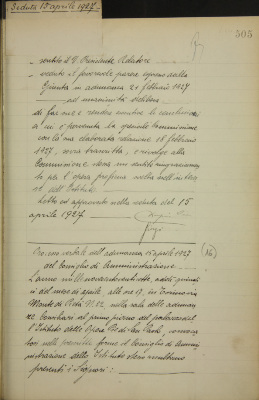 Seduta 15 aprile 1927.
505
- sentito il V. Presidente Relatore
- veduto il favorevole parere espresso dalla
Giunta in adunanza 21 febbraio 1927
ad unanimità delibera
di far proprie e rendere esecutive le conclusioni
a cui è pervenuta la speciale Commissione
con la sua elaborata relazione 18 febbraio
1927, sovra trascritta, e rivolge alla
Commissione stessa un sentito ringraziamento
per l'opera prestata nell'interesse
dell'Istituto.
Letto ed approvato nella seduta del 15
aprile 1927.
Processo verbale dell'adunanza 15 aprile 1927 (16)
del Consiglio di Amministrazione.
L'anno millenovecentoventisette, addì quindici
del mese di aprile, alle ore 17, in Torino via
Monte di Pietà N. 32 nella sala delle adunanze
Consiliari al primo piano del palazzo dell'
Istituto delle Opere Pie di San Paolo, convocatosi
nelle forme il Consiglio di Amministrazione
dello Istituto stesso risultano
presenti i Signori: